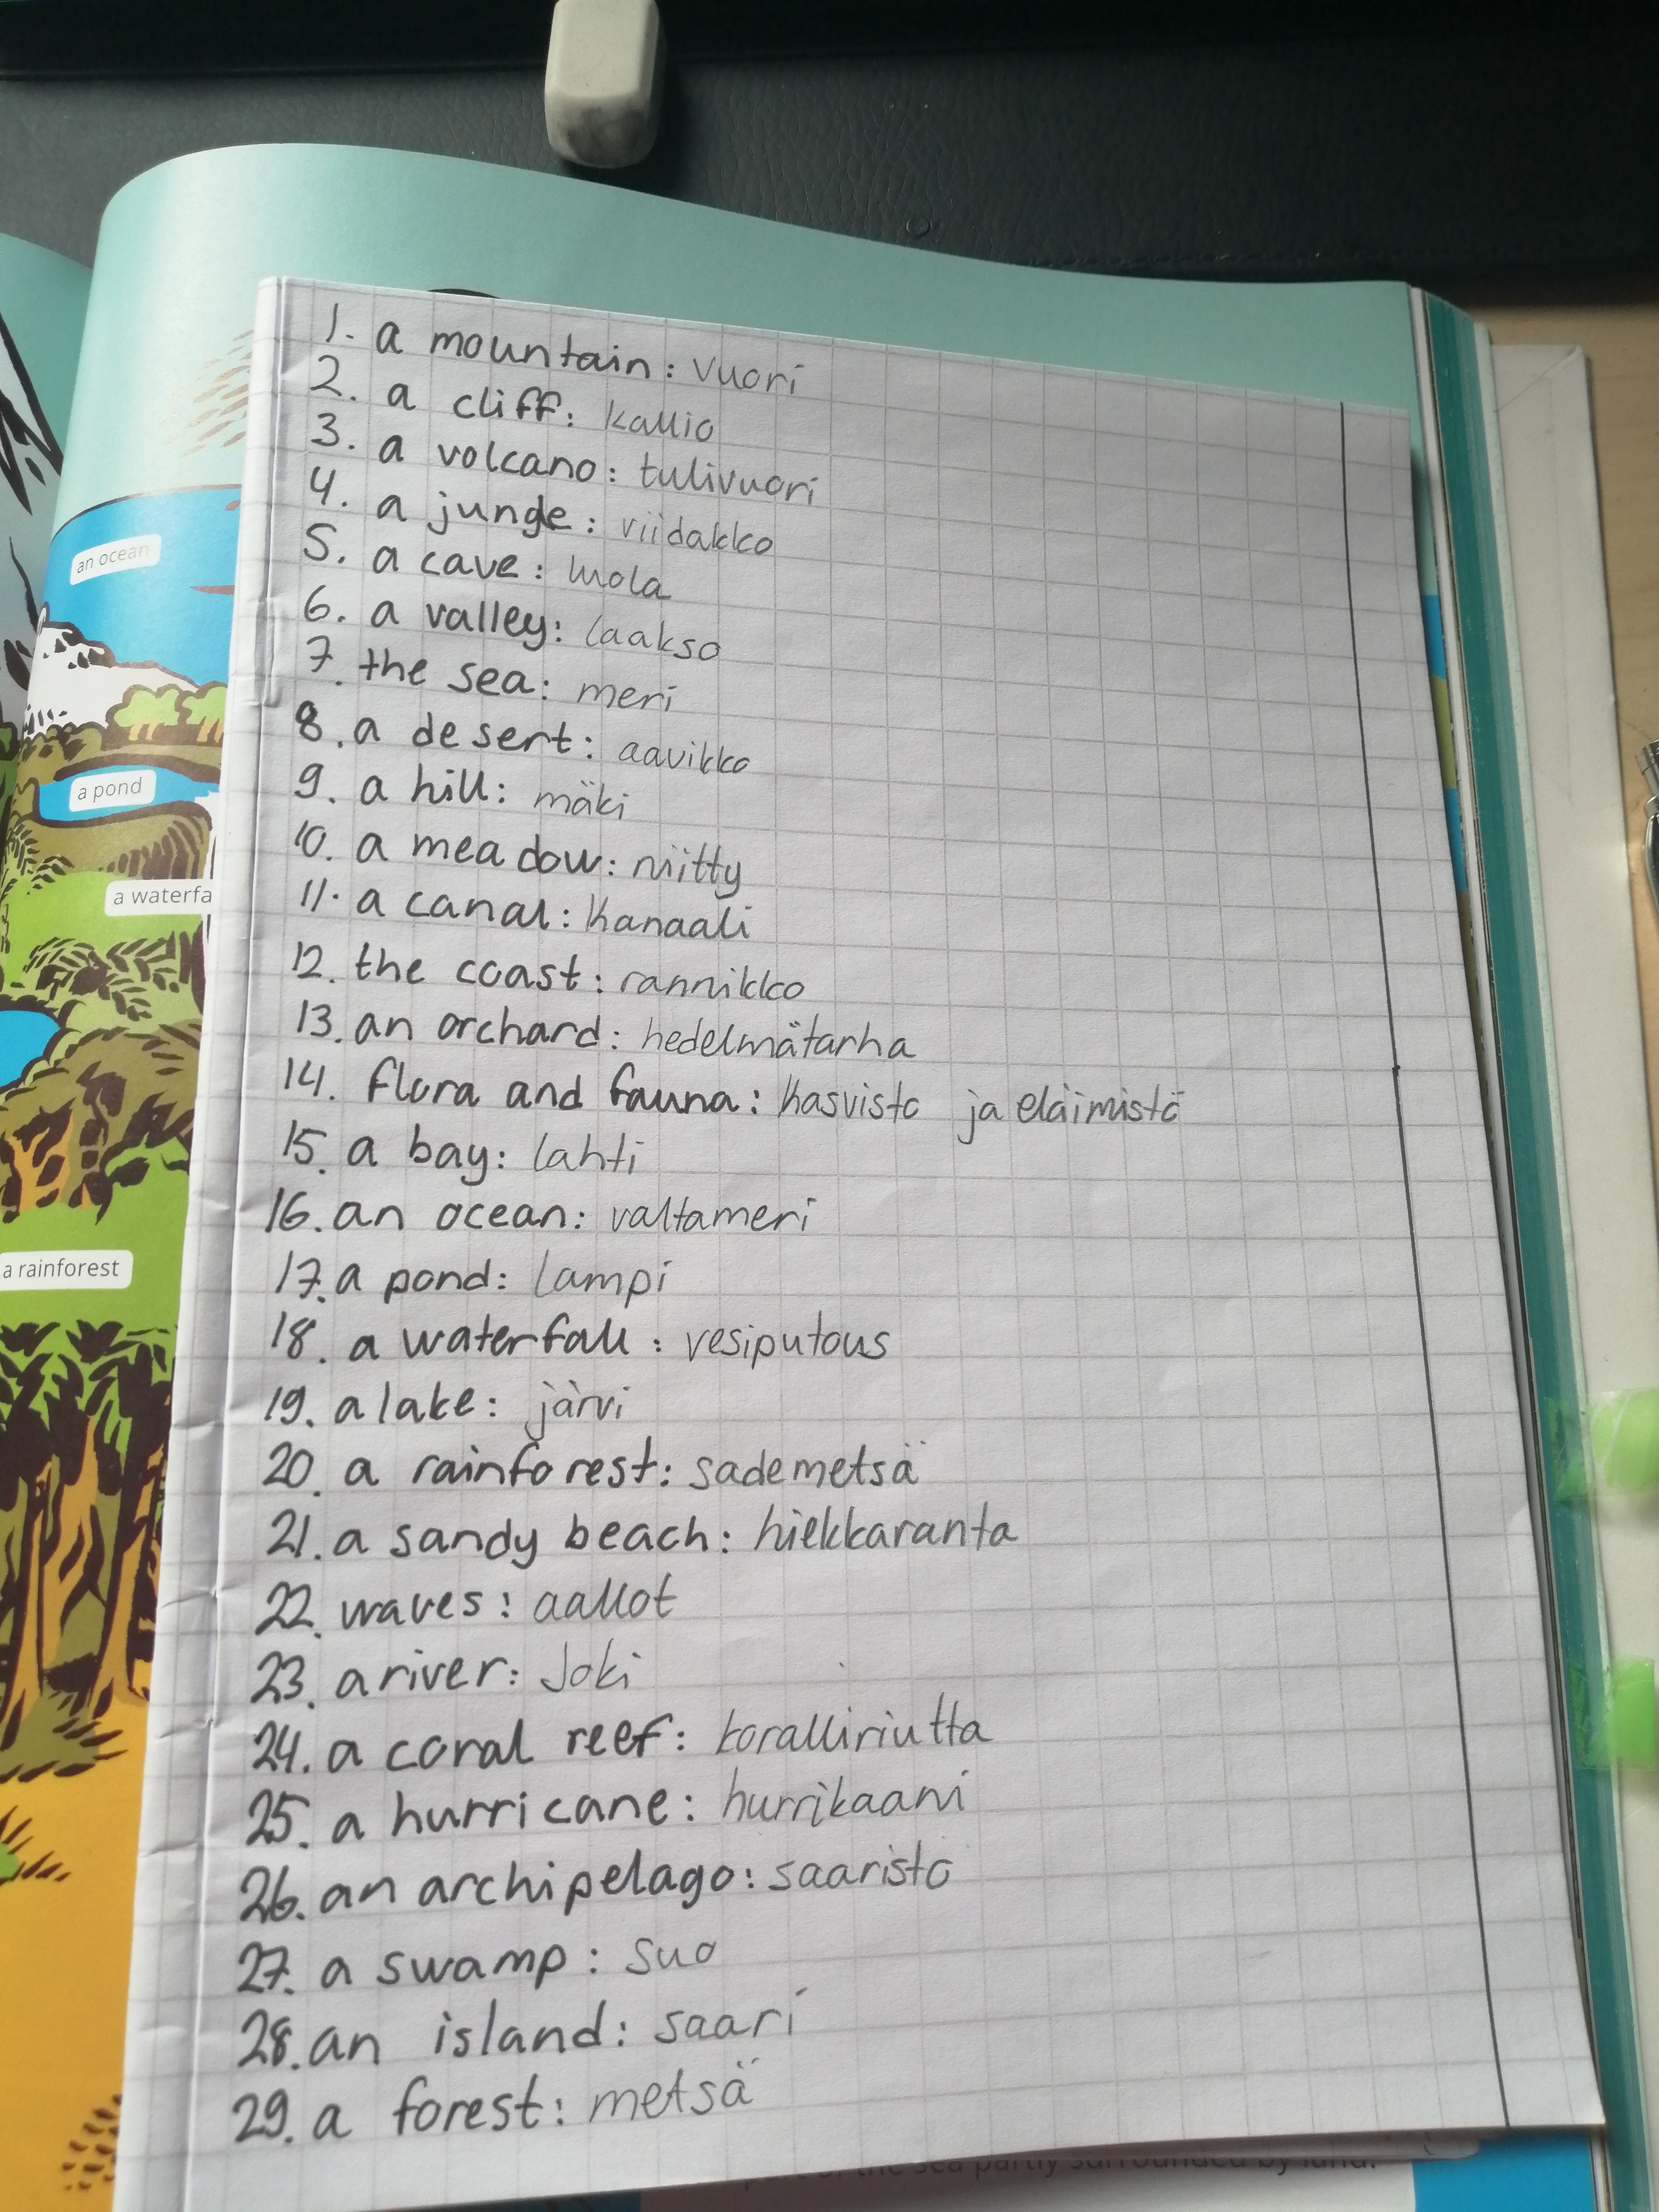 an ocean
a pond
a waterfa
a rainforest
1. a mountain: vuori
2. a cliff: kallio
3. a volcano: tulivuori
4. a jungle: viidakko
5. a cave: luola
6. a valley: laakso
7. the sea: meri
8. a desert: aavikko
9. a hill: mäki
10. a meadow: niitty
11. a canal: kanaali
12. the coast: rannikko
13. an orchard: hedelmätarha
14. flora and fauna: kasvisto ja eläimistö
15. a bay: lahti
16. an ocean: valtameri
17. a pond: lampi
18. a waterfall: vesiputous
19. a lake: järvi
20. a rainforest: sademetsä
21. a sandy beach: hiekkaranta
22. waves: aallot
23. a river: Joki
24. a coral reef: koralliriutta
25. a hurricane: hurrikaani
26. an archipelago: saaristo
27. a swamp: suo
28. an island: saari
29. a forest: metsä
the sea partly surrounded by land.